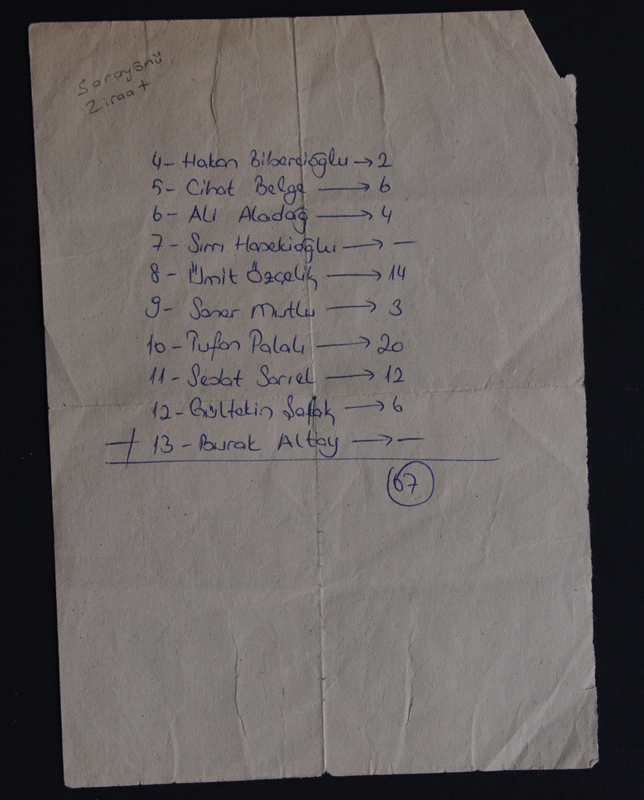 Sarayönü
Ziraat
4- Hakan Biberoğlu → 2
5- Cihat Belge → 6
6- Ali Aladağ → 4
7- Sırrı Hasekioğlu → —
8- Ümit Özçelik → 14
9- Soner Mutlu → 3
10- Tufan Palalı → 20
11- Sedat Sarıel → 12
12- Gültekin Şafak → 6
+ 13- Burak Altay → —
67